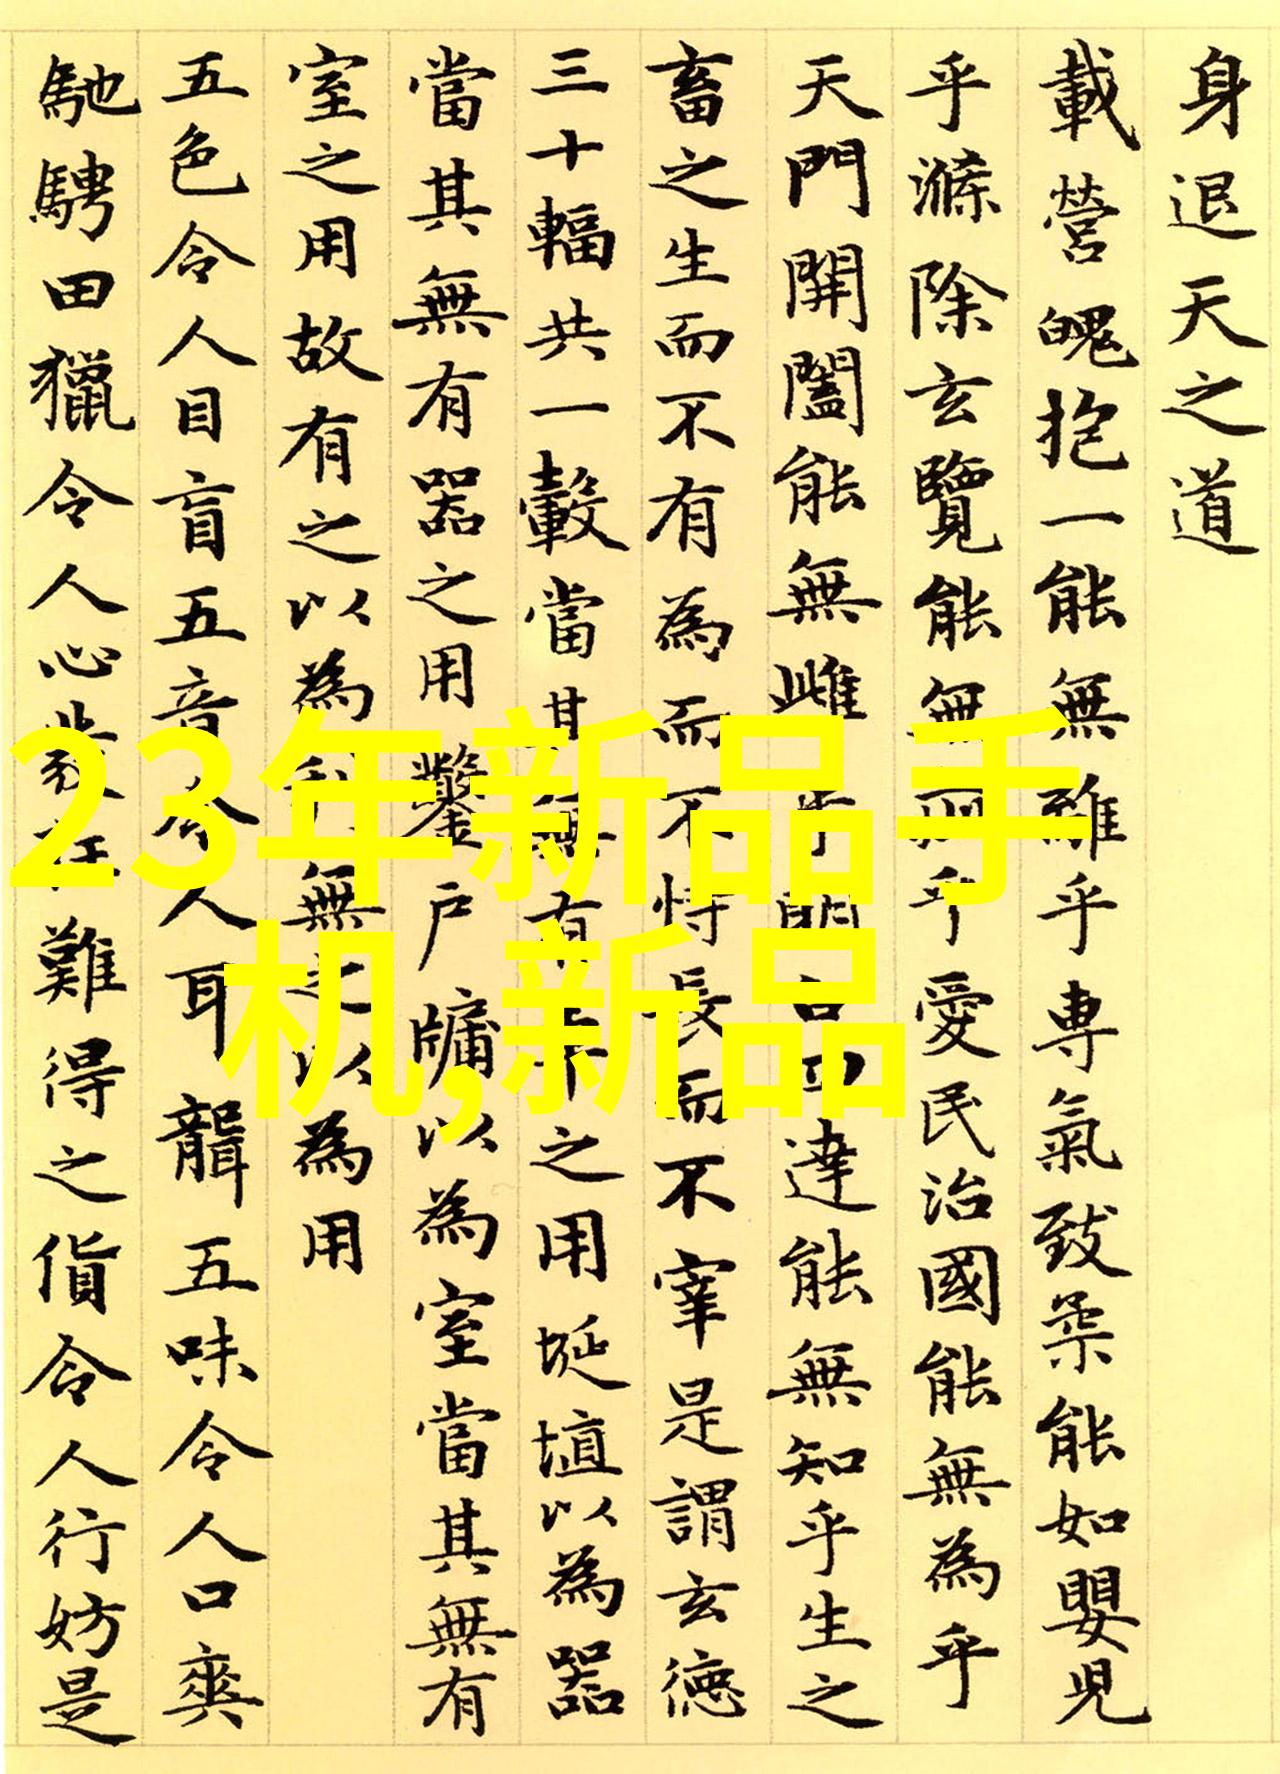 身退天之道
載營魄抱一能無離乎專氣致柔能如嬰兒
乎滌除玄覽能無疵乎愛民治國能無為乎
天門開闔能無雌乎明白四達能無知乎生之
畜之生而不有為而不恃長而不宰是謂玄德
三十輻共一轂當其無有車之用埏埴以為器
當其無有器之用鑿戶牖以為室當其無有
室之用故有之以為利無之以為用
五色令人目盲五音令人耳聾五味令人口爽
馳騁田獵令人心發狂難得之貨令人行妨是
23年新品手
机,新品